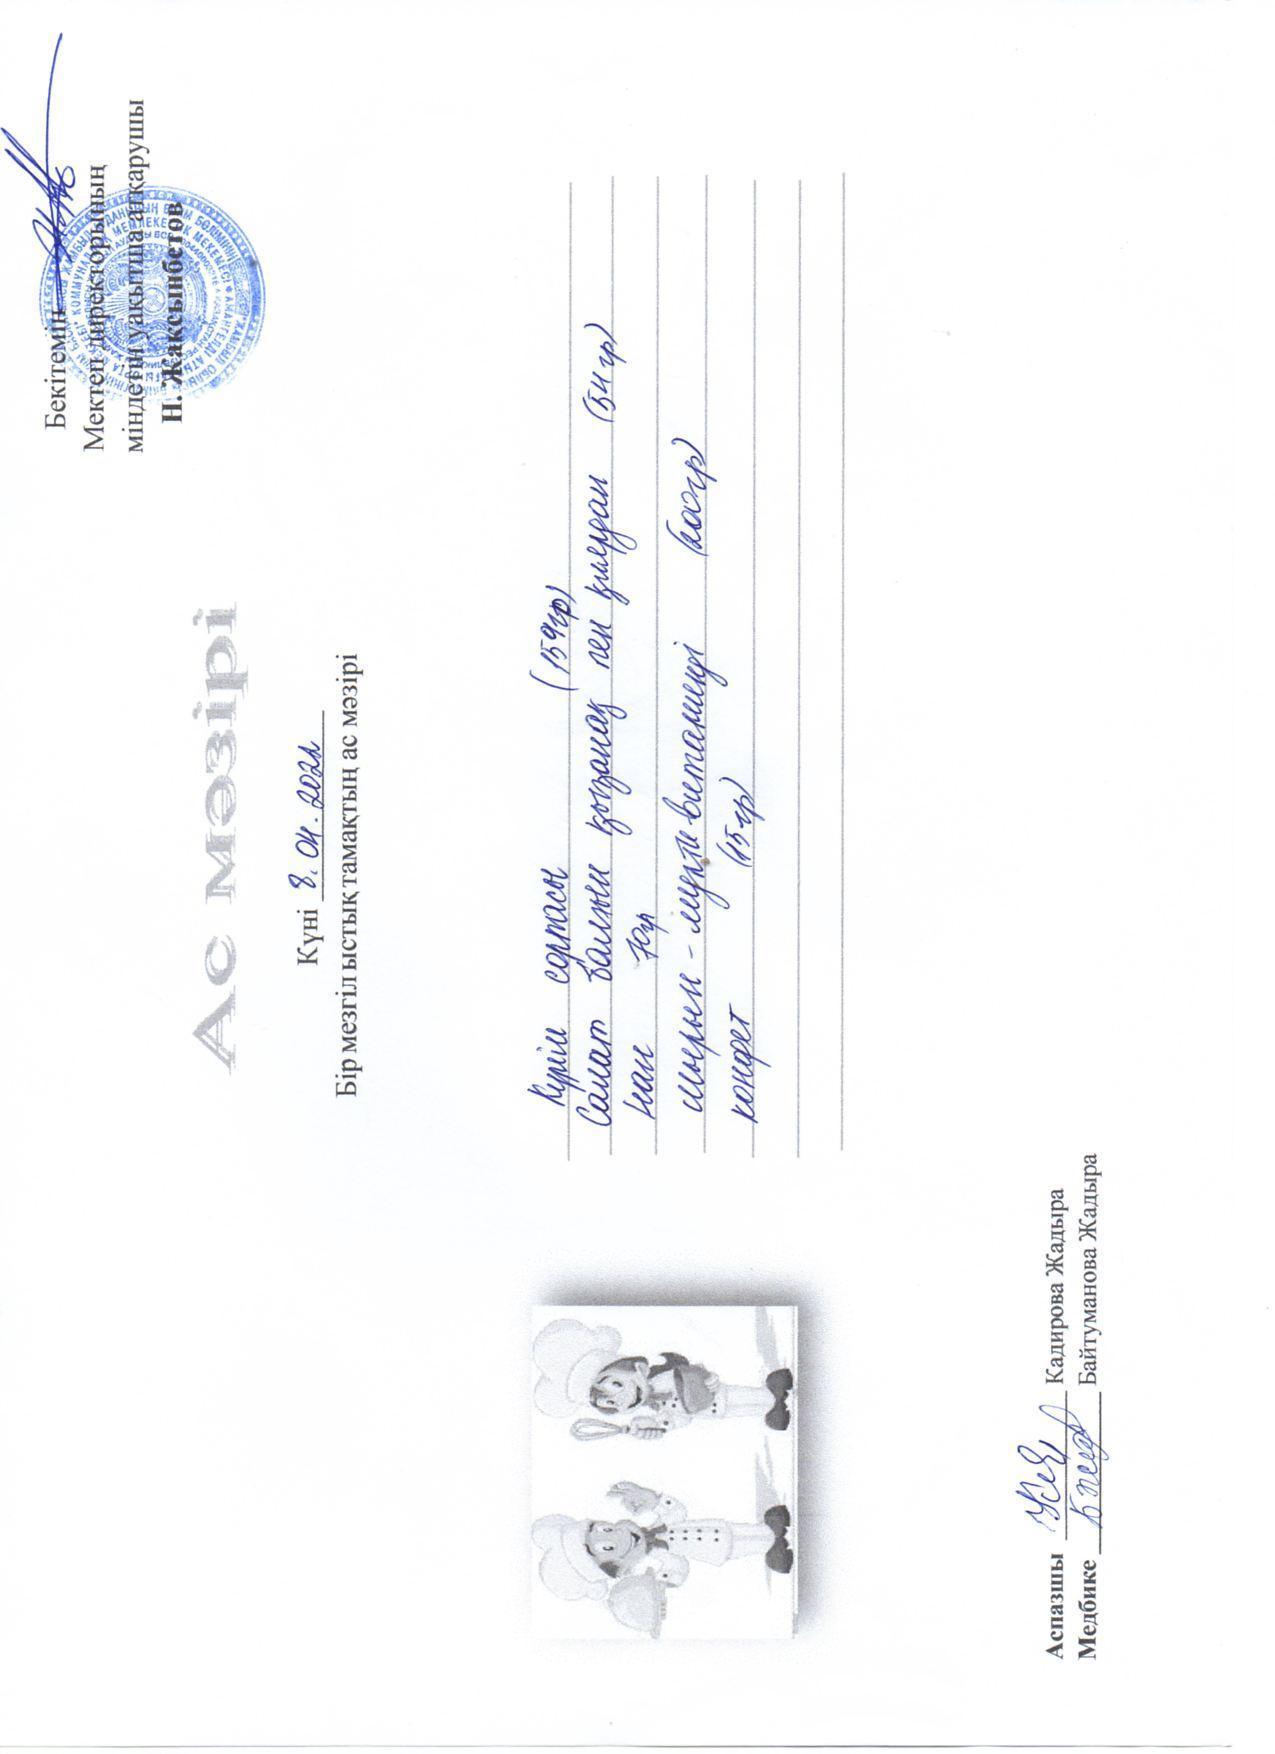 Бекітемін
Мектеп директорының
міндетін уақытша атқарушы
Н. Жақсынбетов
Ас мәзірі
Күні 8.04.2022
Бір мезгіл ыстық тамақтың ас мәзірі
Күріш сорпасы (159гр)
Салат балғын қызанақ пен қиярдан (54 гр)
Нан 70гр
шырын - мультивитаминді (200гр)
конфет (15гр)
Аспазшы Кадирова Жадыра
Медбике Байтуманова Жадыра